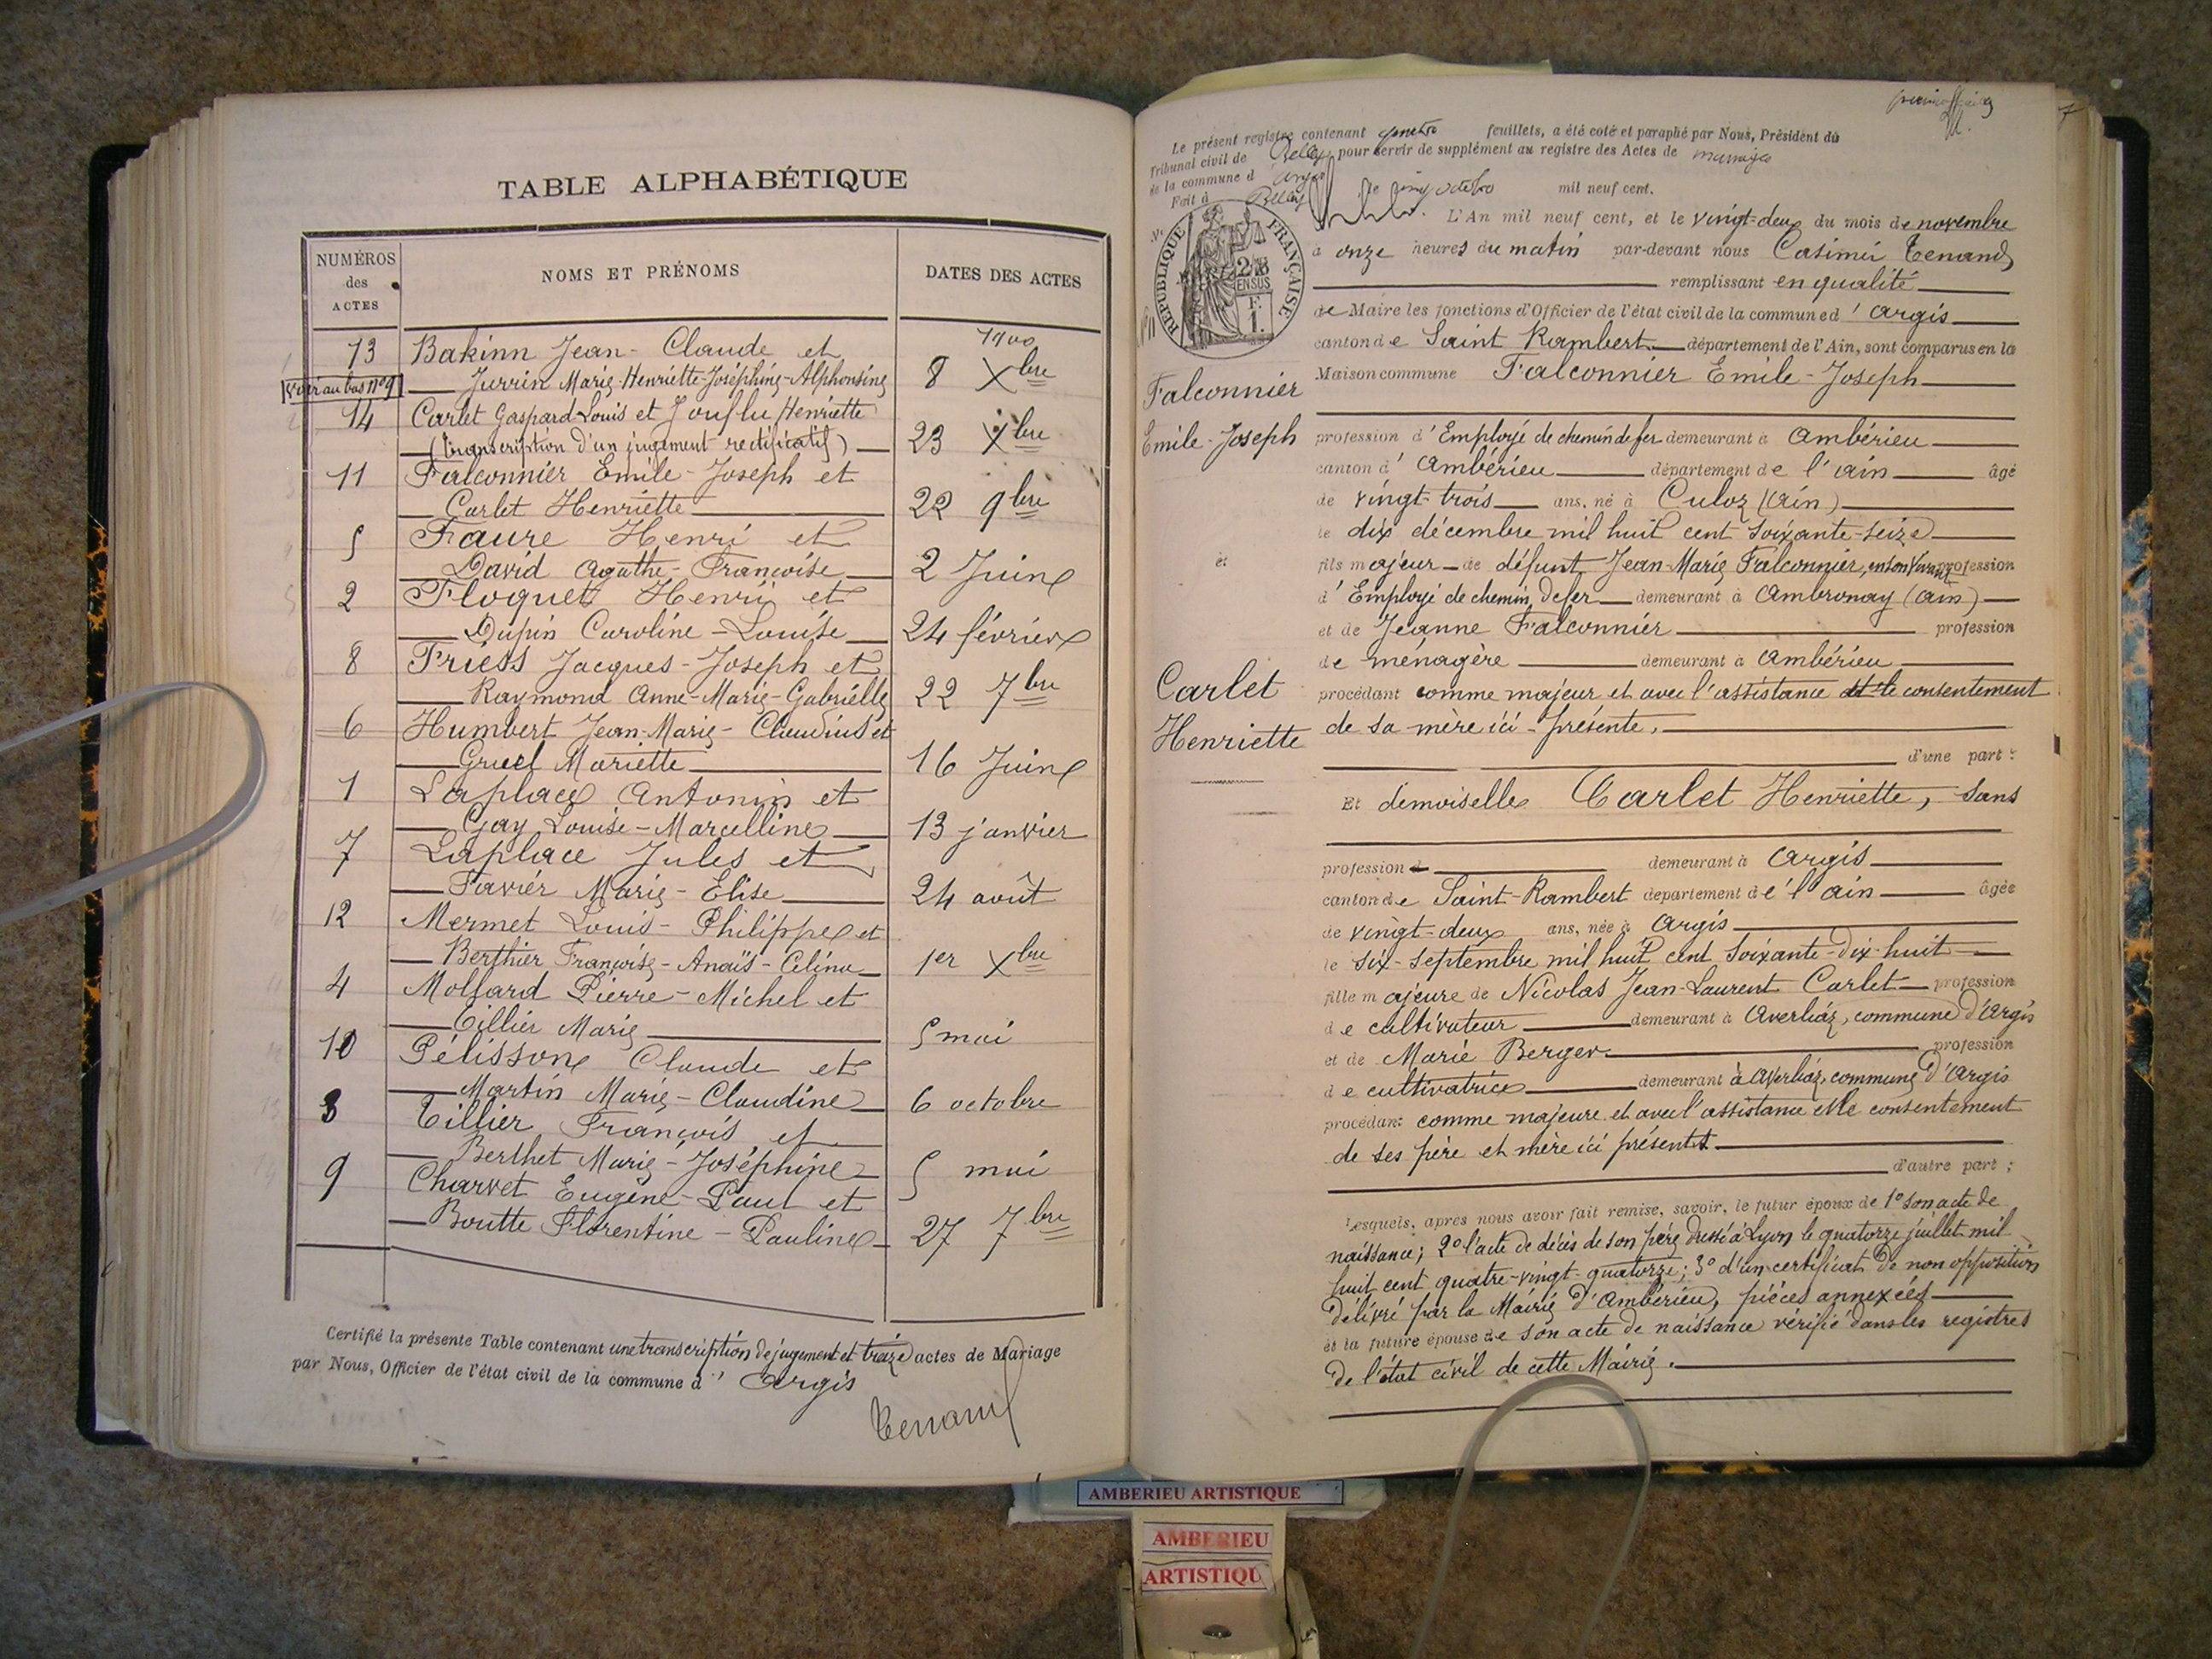 TABLE ALPHABÉTIQUE
NUMÉROS des ACTES
NOMS ET PRÉNOMS
DATES DES ACTES
1900
13 Bakinn Jean-Claude et
voir au bas n° 9 Jurrin Marie-Henriette-Joséphine-Alphonsine 8 Xbre
14 Carlet Gaspard-Louis et Henriette
(transcription d'un jugement rectificatif) 23 Xbre
11 Falconnier Emile-Joseph et
Carlet Henriette 22 9bre
5 Faure Henri et
David Agathe-Françoise 2 Juin
2 Floquet Henri et
Dupin Caroline-Louise 24 février
8 Friess Jacques-Joseph et
Raymond Anne-Marie-Gabrielle 22 7bre
6 Humbert Jean-Marie-Claudius et
Gruel Mariette 16 Juin
1 Laplace Antonin et
Gay Louise-Marcelline 13 janvier
7 Laplace Jules et
Favier Marie-Elise 24 août
12 Mermet Louis-Philippe et
Berthier Françoise-Anaïs-Célina 1er Xbre
4 Molfard Pierre-Michel et
Tillier Marie 5 mai
10 Pélisson Claude et
Martin Marie-Claudine 6 octobre
3 Tillier François et
Berthet Marie-Joséphine 5 mai
9 Charvet Eugène-Paul et
Boutte Florentine-Pauline 27 7bre
Certifié la présente Table contenant une transcription de jugement et treize actes de Mariage
par Nous, Officier de l'état civil de la commune d' Argis
Tenand
Le présent registre contenant quatre feuillets, a été coté et paraphé par Nous, Président du
Tribunal civil de Belley pour servir de supplément au registre des Actes de mariages
de la commune d Argis
Fait à Belley le cinq octobre mil neuf cent.
RÉPUBLIQUE FRANÇAISE
EN SUS
L'An mil neuf cent, et le vingt-deux du mois de novembre
à onze heures du matin par-devant nous Casimir Tenand
remplissant en qualité
de Maire les fonctions d'Officier de l'état civil de la commune d' Argis
canton de Saint Rambert département de l'Ain, sont comparus en la
Maison commune Falconnier Emile-Joseph
Falconnier
Emile-Joseph
profession d' Employé de chemin de fer demeurant à Ambérieu
canton d' Ambérieu département de l'ain âgé
de vingt-trois ans, né à Culoz (ain)
le dix décembre mil huit cent soixante-seize
et
fils majeur de défunt Jean-Marie Falconnier, en son vivant profession
d' Employé de chemin de fer demeurant à Ambronay (ain)
et de Jeanne Falconnier profession
de ménagère demeurant à Ambérieu
Carlet
Henriette
procédant comme majeur et avec l'assistance et le consentement
de sa mère ici-présente,
d'une part :
Et demoiselle Carlet Henriette, sans
profession demeurant à Argis
canton de Saint-Rambert département de l'ain âgée
de vingt-deux ans, née à Argis
le six-septembre mil huit cent soixante-dix-huit
fille majeure de Nicolas Jean-Laurent Carlet profession
de cultivateur demeurant à Averliaz, commune d'Argis
et de Marie Berger profession
de cultivatrice demeurant à Averliaz, commune d'Argis
procédant comme majeure et avec l'assistance et le consentement
de ses père et mère ici présents
d'autre part ;
Lesquels, après nous avoir fait remise, savoir, le futur époux de 1° son acte de
naissance ; 2° l'acte de décès de son père dressé à Lyon le quatorze juillet mil
huit cent quatre-vingt-quatorze ; 3° d'un certificat de non opposition
délivré par la Mairie d'Ambérieu, pièces annexées
et la future épouse de son acte de naissance vérifié dans les registres
de l'état civil de cette Mairie.
AMBERIEU ARTISTIQUE
AMBERIEU
ARTISTIQU